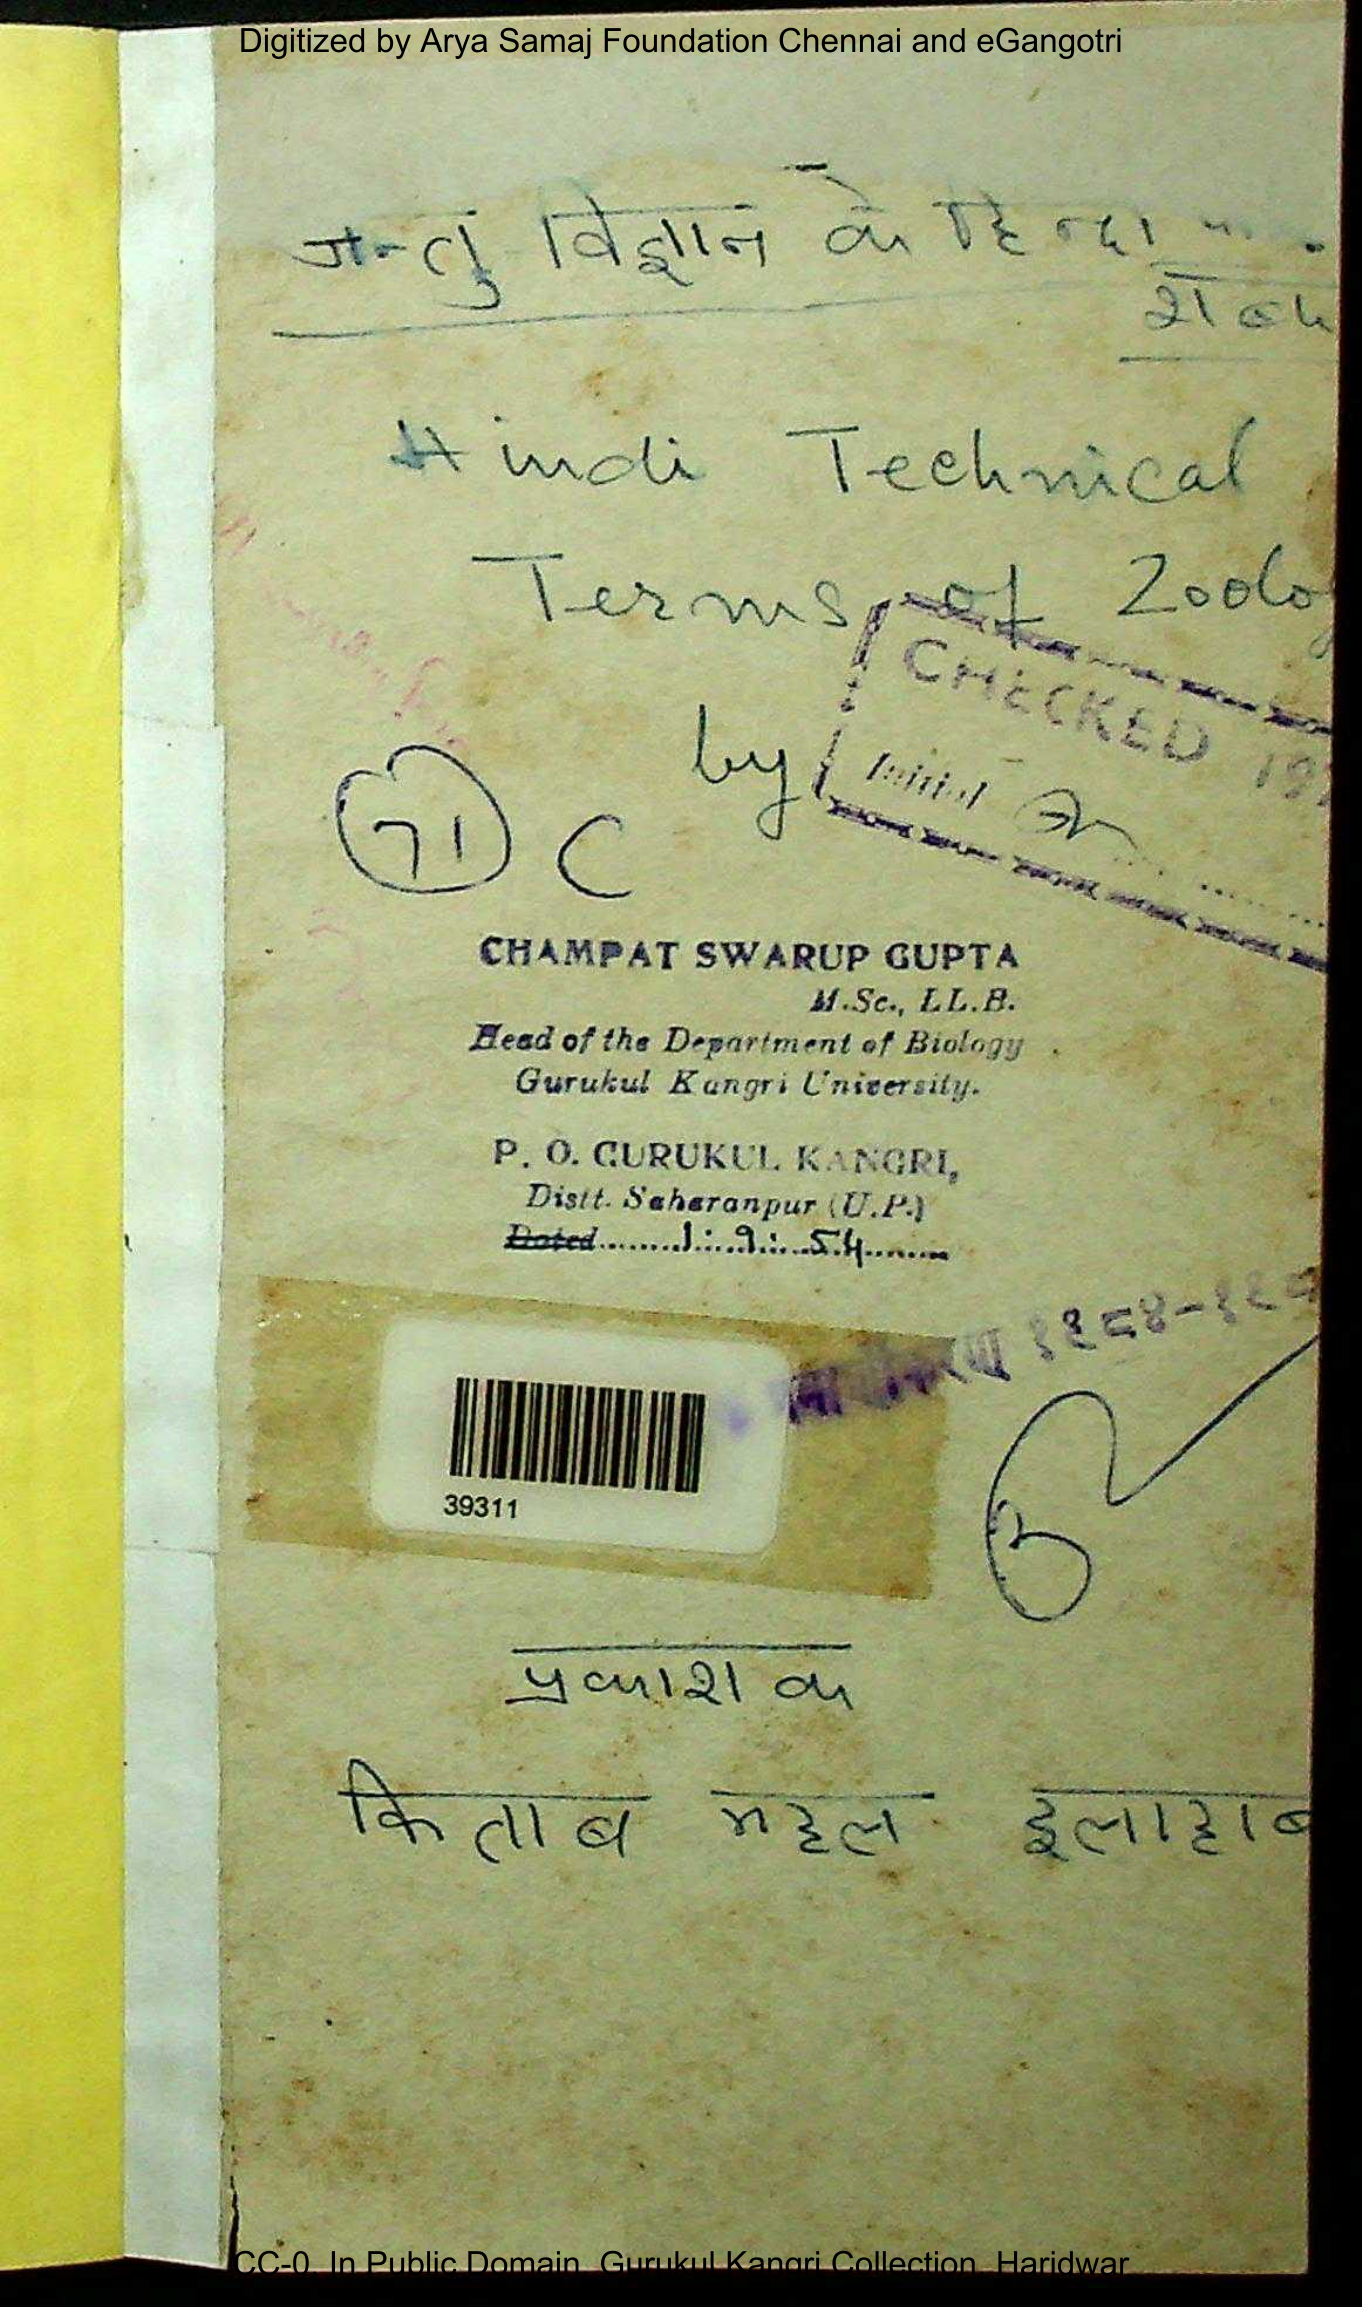 Digitized by Arya Samaj Foundation Chennai and eGangotri
जन्तु विज्ञान के
Hindi Technical
Terms of Zoolo
CHECKED 19
by
Initial
71 C
CHAMPAT SWARUP GUPTA
M.Sc., LL.B.
Head of the Department of Biology
Gurukul Kangri University.
P. O. GURUKUL KANGRI,
Distt. Saharanpur (U.P.)
Dated 1.9.54
१९८४-१९८
39311
प्रकाशक
किताब महल इलाहाब
CC-0. In Public Domain. Gurukul Kangri Collection, Haridwar